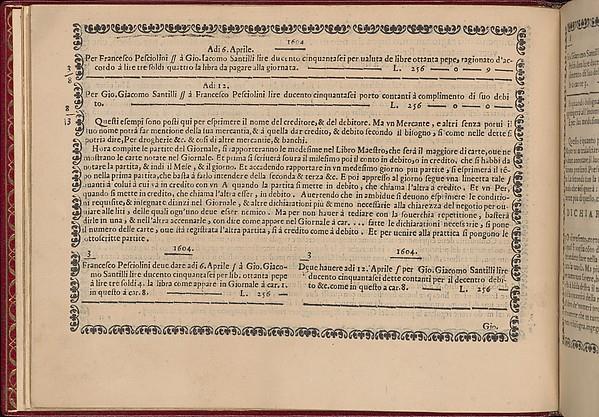 1604
Adi 6. Aprile.
Per Francesco Pesciolini // à Gio. Iacomo Santilli lire ducento cinquantasei per ualuta de libre ottanta pepe, ragionato d'ac-
cordo à lire tre soldi quattro la libra da pagare alla giornata. L. 256 — 0 — 9
Adi 12.
Per Gio. Giacomo Santilli // à Francesco Pesciolini lire ducento cinquantasei porto contanti à complimento di suo debi
to. L. 256 — 0 — 0
Questi esempi sono posti qui per esprimere il nome del creditore, & del debitore. Ma vn Mercante, e altri senza porui il
suo nome potrà far mentione della sua mercantia, & à quella dar credito, & debito secondo il bisogno, sì come nelle dette si
potra dire, Per drogherie &c. & così di altre mercantie, & banchi.
Hora compite le partite del Giornale, si apporteranno le medesime nel Libro Maestro, che serà il maggiore di carte, oue ne
mostrano le carte notate nel Giornale. Et prima si scriuerà soura il milesimo poi il conto in debito, o in credito, che si habbi da
notare la partita, & indi il Mese, & il giorno. Et accadendo rapportare in vn medesimo giorno piu partite, si esprimerà il tē-
po nella prima partita, che basta à farlo intendere della seconda & terza &c. E poi appresso al giorno segue vna lineetta tale /
quanti à colui à cui và in credito con vn A quando la partita si mette in debito, che chiama l'altra à credito. Et vn Per,
quando si mette in credito, che chiama l'altra esser, in debito. Auertendo che in ambidue si deuono esprimere le conditio-
ni requisite, & insegnate dianzi nel Giornale, & altre dichiarationi più & meno necessarie alla chiarezza del negotio per ou
uiare alle liti, delle quali ogn'uno deue esser nemico. Ma per non hauer à tediare con la souerchia repetitione, basterà
dirle in una, & nell'altra accennarle, con dire come appare nel Giornale à car. ... fatte le dichiarationi necessarie, si pone
il numero delle carte, oue stà registrata l'altra partita, sì à credito come à debito. Et per uenire alla prattica si pongono le
sottoscritte partite.
3 1604.
Francesco Pesciolini deue dare adi 6. Aprile / à Gio. Giaco-
mo Santilli lire ducento cinquantasei per lib. ottanta pepe
à lire tre soldi 4. la libra come appare in Giornale à car. 1.
in questo à car. 8. L. 256 —
3 1604.
Deue hauere adi 12. Aprile / per Gio. Giacomo Santilli lire
ducento cinquantasei dette contanti per il decontro debi-
to &c. come in questo à car. 8. L. 256 —
Gio.